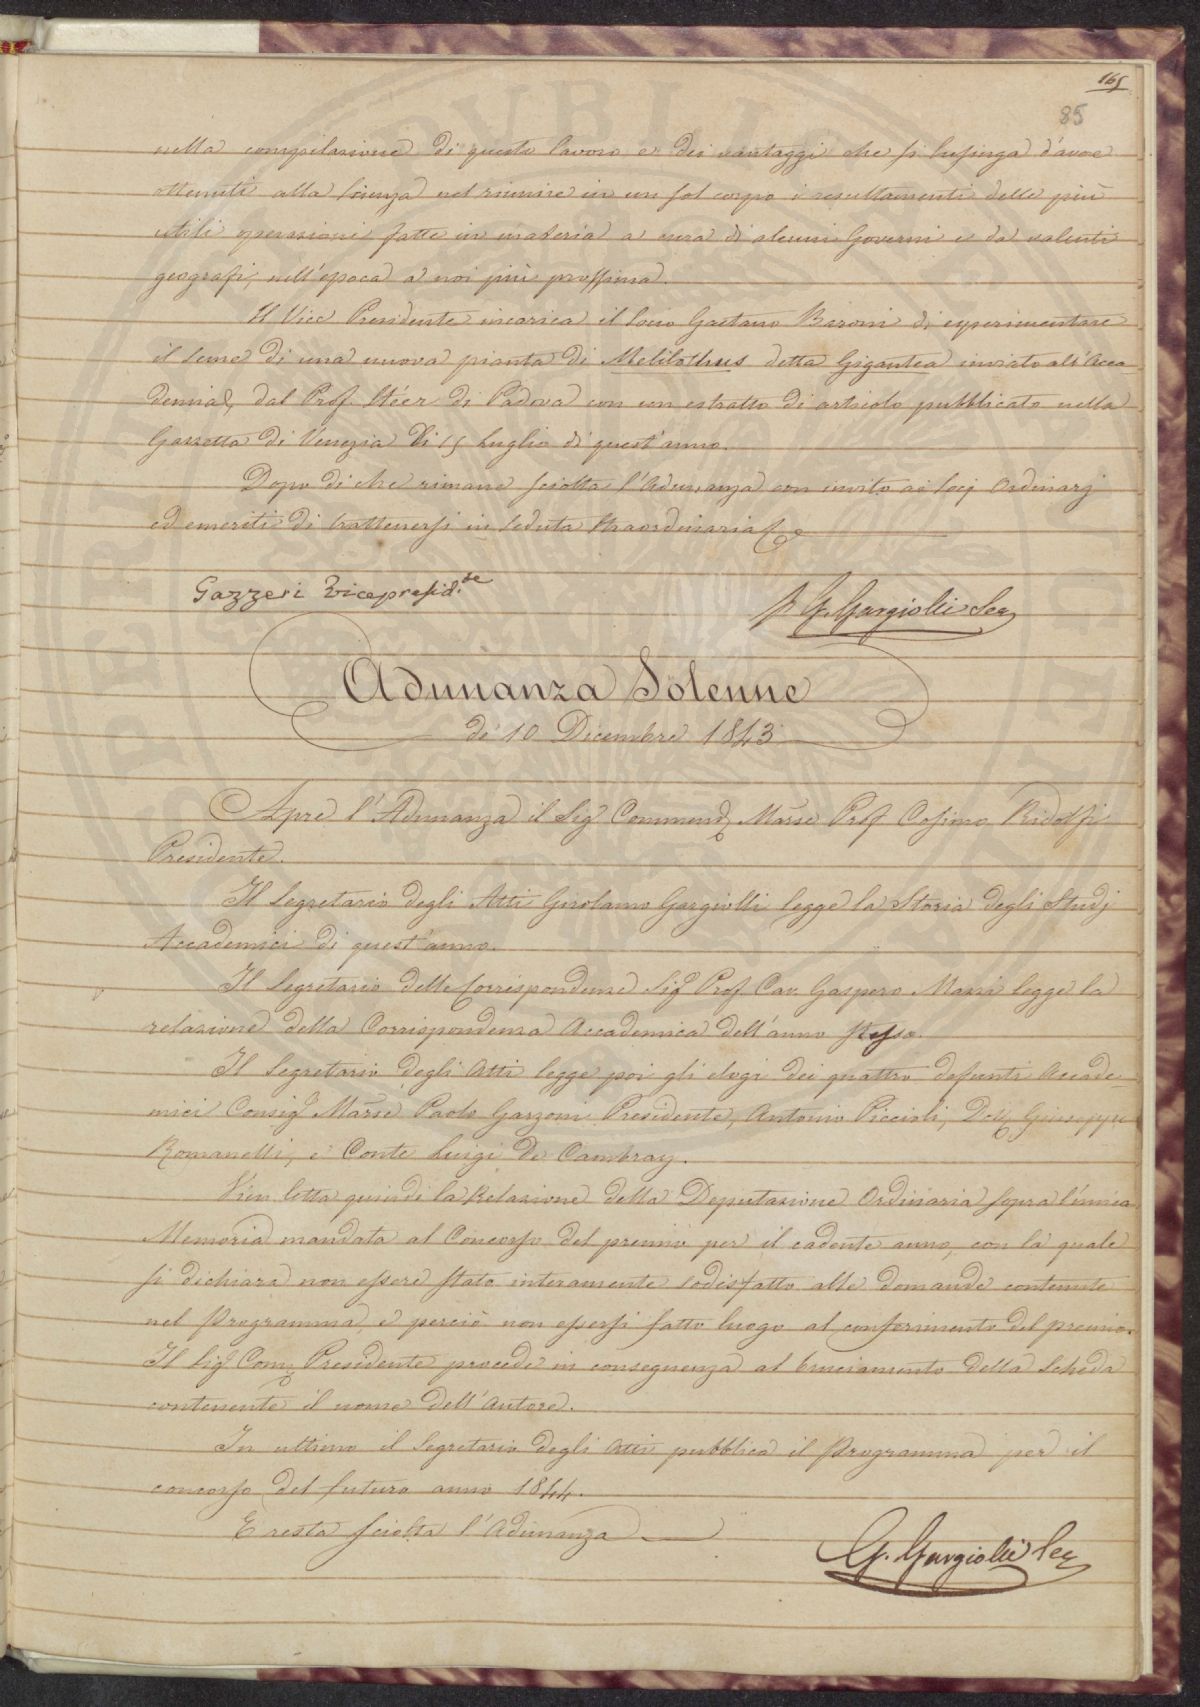 165
85
nella compilazione di questo lavoro e dei vantaggi che si lusinga d'aver
ottenuti alla scienza nel riunire in un sol corpo i resultamenti delle più
utili operazioni fatte in materia a cura di alcuni Governi e da valenti
geografi, nell'epoca a noi più prossima.
Il Vice Presidente incarica il Socio Gaetano Baroni di esperimentare
il seme di una nuova pianta di Melilothus detta Gigantea inviato all'Acca
demia, dal Prof. Stéer di Padova con un estratto di articolo pubblicato nella
Gazzetta di Venezia di 15 Luglio di quest'anno.
Dopo di che rimane sciolta l'Adunanza con invito ai Socj Ordinarj
ed emeriti di trattenersi in Seduta Straordinaria
Gazzeri Vicepresid.te
G. Gargiolli Seg
Adunanza Solenne
de 10 Dicembre 1843
Apre l'Adunanza il Sig Commend Marse Prof Cosimo Ridolfi
Presidente.
Il Segretario degli Atti Girolamo Gargiolli legge la Storia degli Studj
Accademici di quest'anno.
Il Segretario delle Corrispondenze Sig Prof Cav. Gaspero Mazzi legge la
relazione della Corrispondenza Accademica dell'anno stesso.
Il Segretario degli Atti legge poi gli elogi dei quattro defunti Accade
mici Consig Marse Paolo Garzoni Presidente, Antonio Piccioli, Dott Giuseppe
Romanelli, e Conte Luigi De Cambray.
Vien letta quindi la Relazione della Deputazione Ordinaria sopra l'unica
Memoria mandata al Concorso del premio per il cadente anno, con la quale
si dichiara non essere stato interamente sodisfatto alle domande contenute
nel Programma, e perciò non essersi fatto luogo al conferimento del premio.
Il Sig Com Presidente procede in conseguenza al bruciamento della Scheda
contenente il nome dell'Autore.
In ultimo il Segretario degli Atti pubblica il Programma per il
concorso del futuro anno 1844.
E resta sciolta l'Adunanza
G. Gargiolli Seg